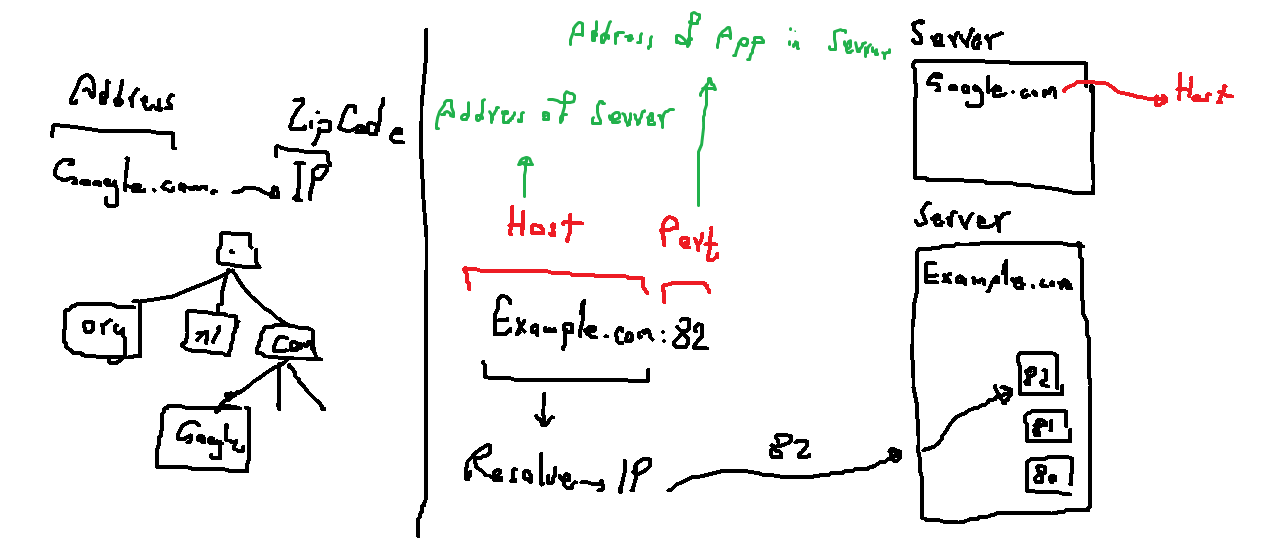 Address
ZipCode
Google.com. → IP
.
org
nl
com
Google
Address of App in Server
Address of Server
Host
Port
Example.com:82
Resolve → IP
82
Server
Google.com
Host
Server
Example.com
82
81
80